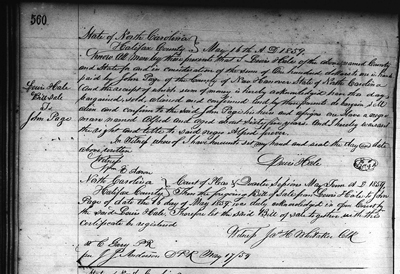 560
State of North Carolina
Halifax County May 16th A.D 1859.
Know all Men by these presents that I Louis Hale of the above named County
and State for and in consideration of the sum of One hundred dollars to me in hand
paid by John Page of the County of New Hanover State of North Carolina
(and the receipt of which sum of money is hereby acknowledged) have this day
bargained, sold, aliened and confirmed and by these presents do bargain, sell
alien and confirm to the said John Page his heirs and assigns one slave a negro
man named Alfred and aged about thirty four years. And I hereby warrant
the right and title to said negro Alfred forever.
In witness whereof I have hereunto set my hand and seal the day and date
above written
Louis Hale
Bill sale
To
John Page
Witness
Louis Hale
North Carolina Court of Pleas & Quarter Sessions May Term A.D. 1859
Halifax County Then the foregoing Bill of sale from Louis Hale to John
Page of date the 16 day of May 1859 was duly acknowledged in open Court by
the said Louis Hale. Therefore let the said Bill of sale together with this
certificate be registered
Witness Jas H Whitaker Clk
W C Gary PR
J J Anderson DPR May 17/59